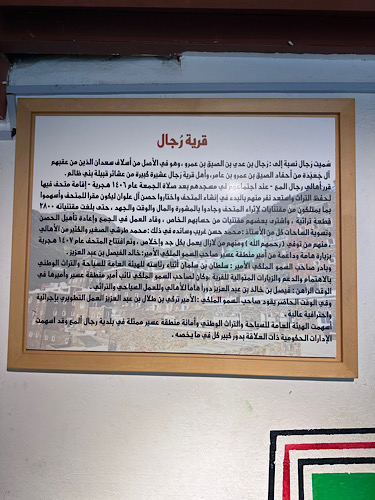 قرية رُجال
سُميت رُجال نسبة إلى : رُجال بن عدي بن الصيق بن عمرو ، وهو في الأصل من أسلاف سعدان الذين من عقبهم
آل جعيدة من أحفاد الصيق بن عمرو بن عامر، وأهل قرية رجال عشيرة كبيرة من عشائر قبيلة بني ظالم .
قرر أهالي رجال ألمع - عند اجتماعهم في مسجدهم بعد صلاة الجمعة عام ١٤٠٦ هجرية - إقامة متحف فيها
لحفظ التراث واستعد نفر منهم بالبدء في إنشاء المتحف واختاروا حصن آل علوان ليكون مقرا للمتحف وأسهموا
بما يمتلكون من مقتنيات لإثراء المتحف وجادوا بالمشورة والمال والوقت والجهد ، حتى بلغت مقتنياته ٢٨٠٠
قطعة تراثية ، واشترى بعضهم مقتنيات من حسابهم الخاص ، وقاد العمل في الجمع وإعادة تأهيل الحصن
وتسوية الساحات كل من الأستاذ : محمد حسن غريب وسانده في ذلك : محمد طرشي الصغير والكثير من الأهالي
، منهم من توفي (رحمهم الله ) ومنهم من لازال يعمل بكل جد وإخلاص ، وتم افتتاح المتحف عام ١٤٠٧ هجرية
بزيارة هامة وداعمة من أمير منطقة عسير صاحب السمو الملكي الأمير : خالد الفيصل بن عبد العزيز .
وبادر صاحب السمو الملكي الأمير : سلطان بن سلمان أثناء رئاسته للهيئة العامة للسياحة والتراث الوطني
بالاهتمام والدعم والزيارات المتوالية للقرية ،وكان لصاحب السمو الملكي نائب أمير منطقة عسير وأميرها في
الوقت الراهن : فيصل بن خالد بن عبد العزيز دورا هاما للأهالي وللعمل السياحي والتراثي .
وفي الوقت الحاضر يقود صاحب السمو الملكي :الأمير تركي بن طلال بن عبد العزيز العمل التطويري بإجرائية
واحترافية عالية .
أسهمت الهيئة العامة للسياحة والتراث الوطني وأمانة منطقة عسير ممثلة في بلدية رجال ألمع وقد أسهمت
الإدارات الحكومية ذات العلاقة بدور كبير كل في ما يخصه .